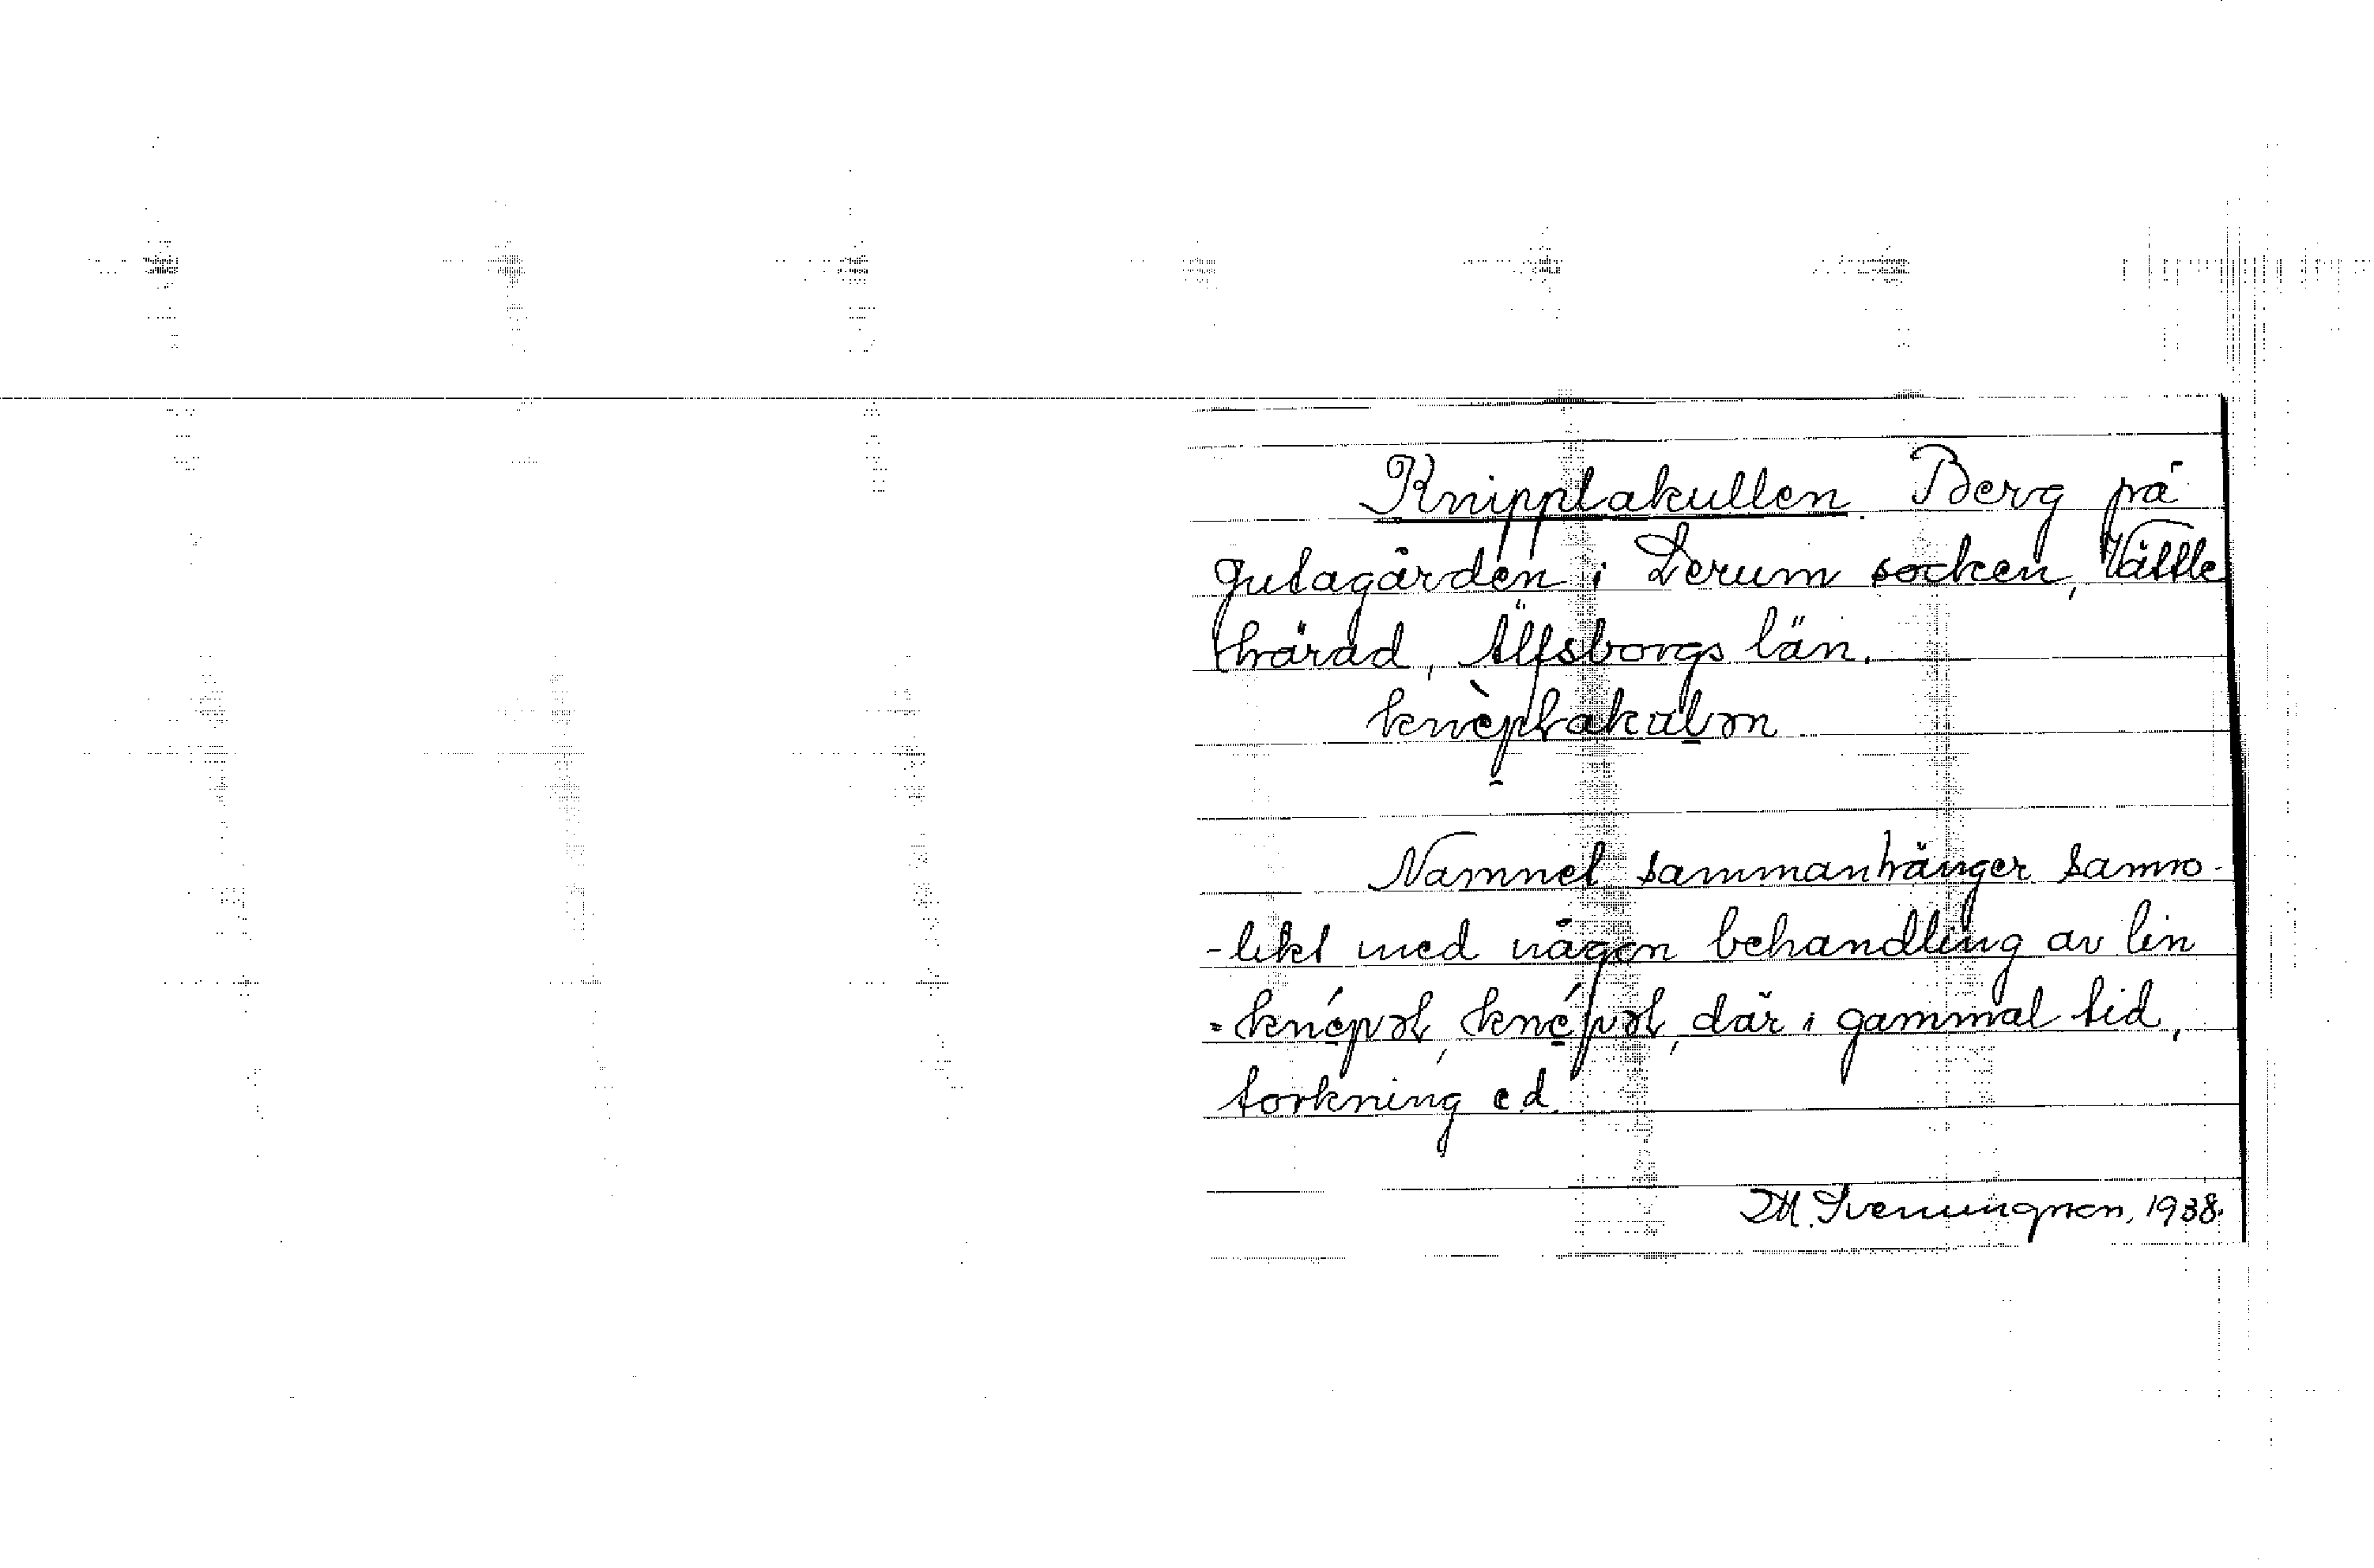 Knipplakullen. Berg på
Gutagården i Lerum socken, Vättle
härad, Älfsborgs län.
knèplakulən
Namnet sammanhänger sanno-
-likt med någon behandling av lin
- knépəl, knépəl, där i gammal tid,
torkning e.d.
M. Svenungson, 1938.